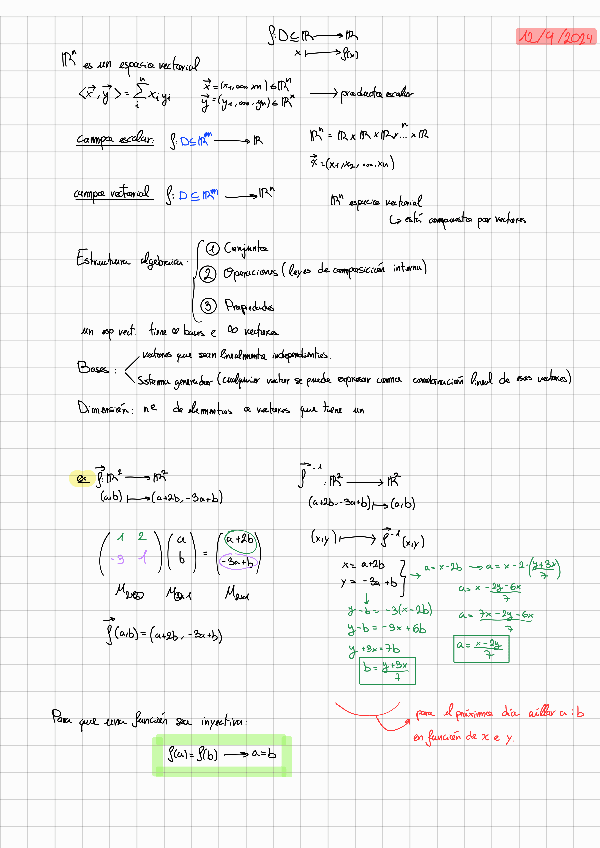 f: D ⊆ ℝ → ℝ
x ↦ f(x)
12/9/2024
ℝⁿ es un espacio vectorial
⟨x⃗, y⃗⟩ = Σ xᵢyᵢ
x⃗ = (x₁, ... xₙ) ∈ ℝⁿ
y⃗ = (y₁, ... yₙ) ∈ ℝⁿ
→ producto escalar
campo escalar: f: D ⊆ ℝᵐ → ℝ
ℝⁿ = ℝ x ℝ x ℝ x ... x ℝ
x⃗ = (x₁, x₂, ... xₙ)
campo vectorial f: D ⊆ ℝᵐ → ℝⁿ
ℝⁿ espacio vectorial
↳ está compuesto por vectores
Estructura algebraica:
① Conjunto
② Operaciones (leyes de composición interna)
③ Propiedades
un esp vect. tiene ∞ bases e ∞ vectores
Bases:
vectores que sean linealmente independientes.
Sistema generador (cualquier vector se puede expresar como combinación lineal de esos vectores)
Dimensión: nº de elementos o vectores que tiene un
ex f⃗: ℝ² → ℝ²
(a,b) ↦ (a+2b, -3a+b)
f⃗⁻¹: ℝ² → ℝ²
(a+2b, -3a+b) ↦ (a,b)
(x,y) ↦ f⃗⁻¹(x,y)
(1 2 / -3 1) (a / b) = (a+2b / -3a+b)
M₂ₓ₂ M₂ₓ₁ M₂ₓ₁
f⃗(a,b) = (a+2b, -3a+b)
x = a+2b
y = -3a+b
→ a = x-2b → a = x - 2·(y+3x)/7
a = x - (2y-6x)/7
a = (7x-2y-6x)/7
a = (x-2y)/7
y-b = -3(x-2b)
y-b = -3x+6b
y+3x = 7b
b = (y+3x)/7
para el próximo día aislar a i b
en función de x e y.
Para que una función sea inyectiva:
f(a) = f(b) → a = b